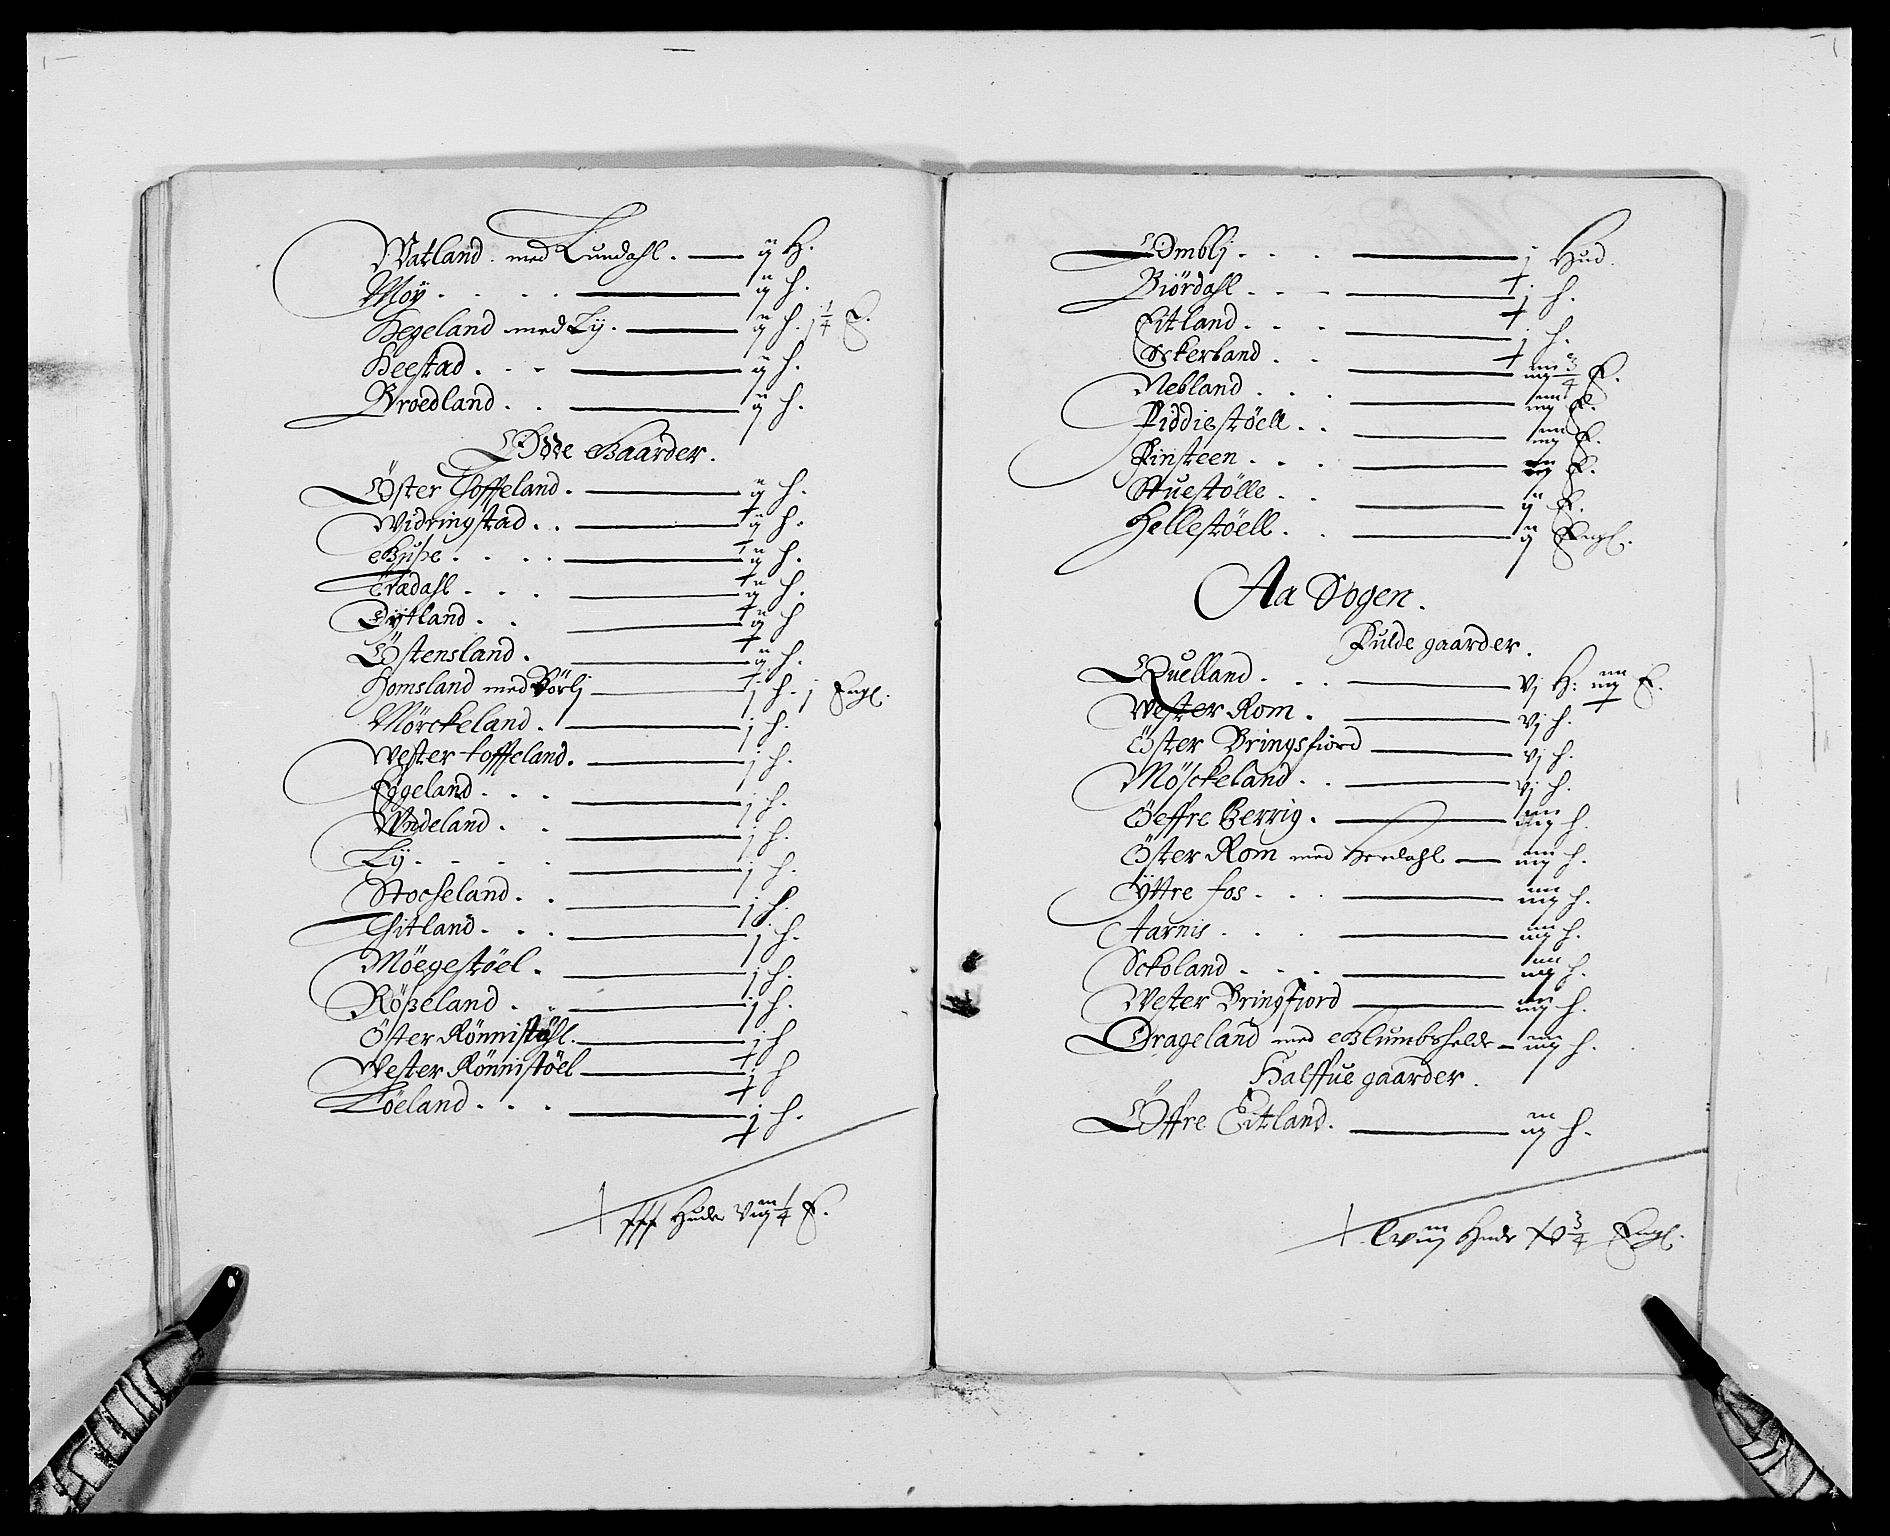 Watland med Lundahl. — ij H.
Möy . . . . — ij h.
Hegeland med Lij. — ij h. j¼ E.
Heestad . . . — ij h.
Broedland . . — ij h.
Øde Gaarder.
Öster Toffeland. — ij h.
Widringstad . . — ij h.
Guse . . . . — ij h.
Trædahl . . . — ij h.
Tytland . . — ij h
Östensland . — ij h.
Homsland med Börlj — j h. j Engl.
Mörckeland . — j h.
Wester toffeland. — j h.
Eggeland . . . — j h.
Windeland . . — j h.
Lÿ . . . . — j h.
Stocheland . . — j h.
Thitland . . . — j h.
Möegestöel . — j h.
Röszeland . . — j h.
Öster Rönnistöhl. — j h
Wester Rönnistöel — j h
Löeland . . . — j h.
Huder ¼ E.
Omblj . . . — j Hud.
Biördahl . . . — j h.
Eitland . . . — j h.
Sckerland . . — iiij ¾ E.
Nebland . . . — iiij E.
Fiddiestöell . . — iiij E.
Finsteen . . . — E.
Stuestölle . . — ij E.
Hellestöell . . — ij Engl.
Aa Sogen.
Fulde gaarder.
Quelland . . . — vj H: iiij E.
Wester Rom . — vj h.
Öster Bringsfiord — vj h.
Möschkeland . . — vj h.
Öeffre Berrig . — iiij h.
Öster Rom med — iiij h.
Yttre fos . . . — iiij h.
Aarnis . . . — iiij h.
Sckoland . . . — iiij h.
Wester Bringfiord — iiij h.
Drageland med — iiij h.
Halffue gaarder.
Öffre Eitland. — iij h.
Lviij Huder ¾ Engl.